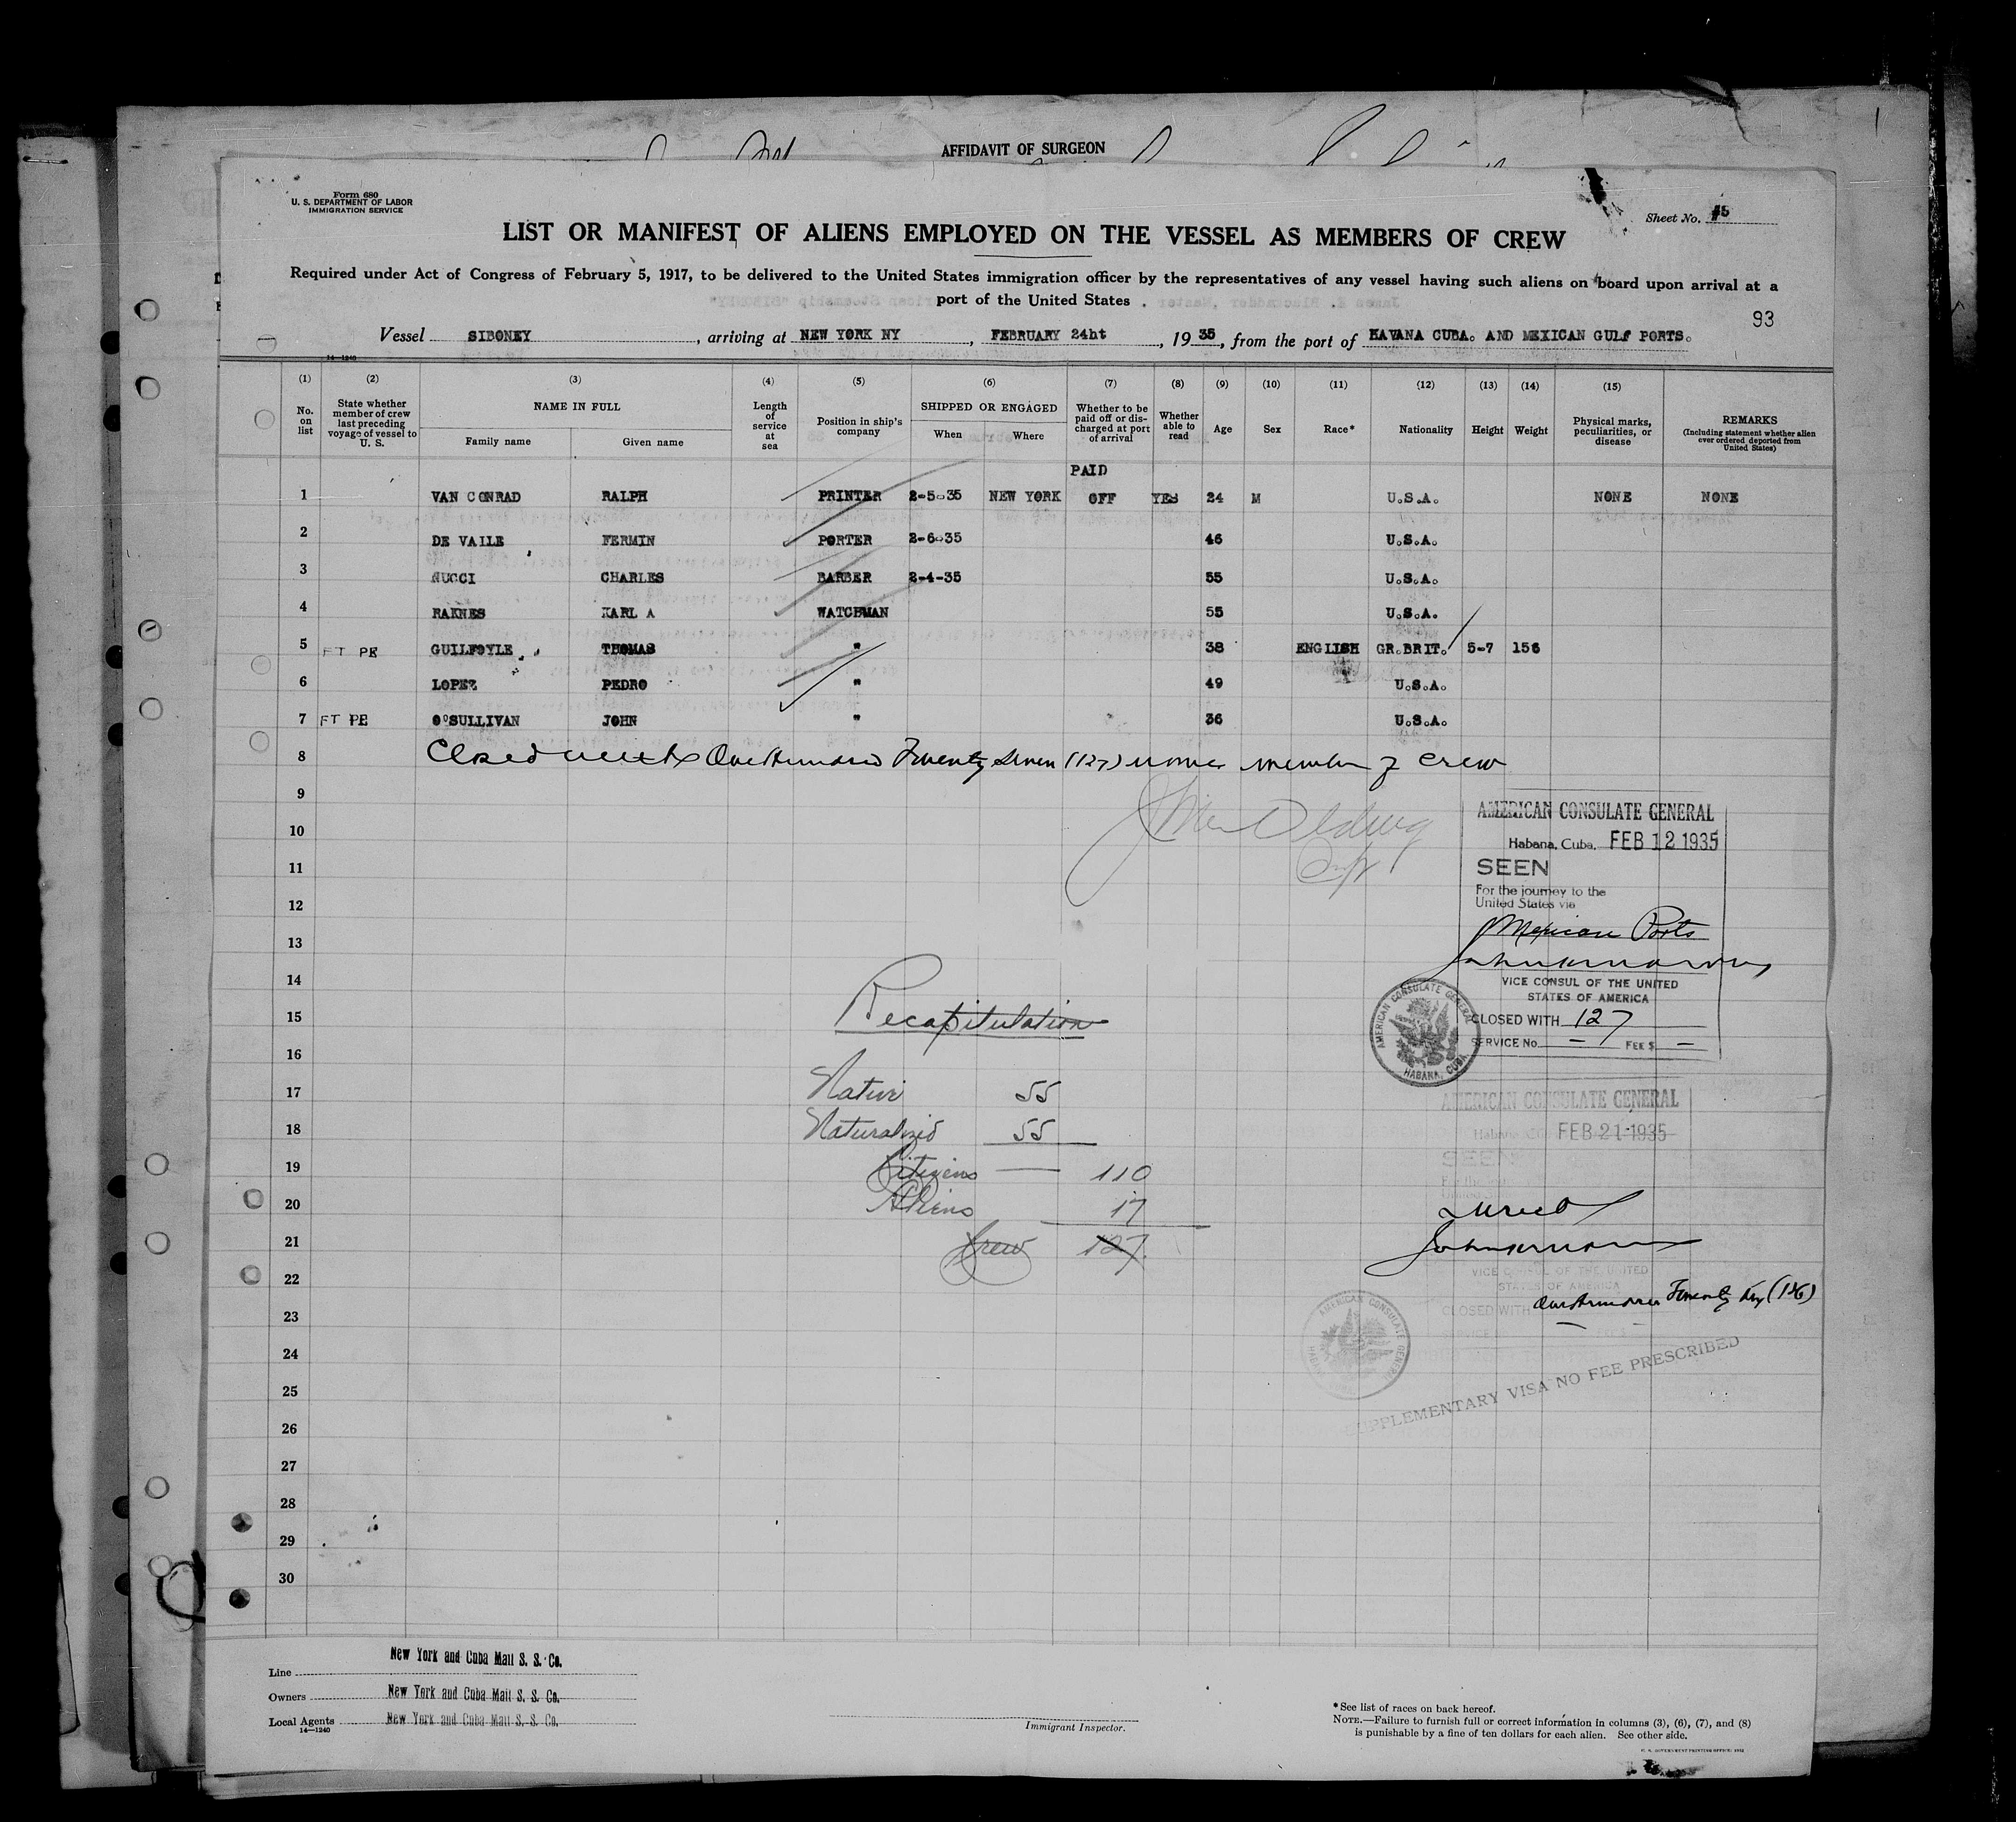 AFFIDAVIT OF SURGEON
Form 680
U. S. DEPARTMENT OF LABOR
IMMIGRATION SERVICE
Sheet No. 5
LIST OR MANIFEST OF ALIENS EMPLOYED ON THE VESSEL AS MEMBERS OF CREW
Required under Act of Congress of February 5, 1917, to be delivered to the United States immigration officer by the representatives of any vessel having such aliens on board upon arrival at a
port of the United States
93
Vessel SIBONEY, arriving at NEW YORK NY, FEBRUARY 24ht, 1935, from the port of HAVANA CUBA. AND MEXICAN GULF PORTS.
14-1240
(1) (2) (3) (4) (5) (6) (7) (8) (9) (10) (11) (12) (13) (14) (15)
No. on list
State whether member of crew last preceding voyage of vessel to U. S.
NAME IN FULL
Family name Given name
Length of service at sea
Position in ship's company
SHIPPED OR ENGAGED
When Where
Whether to be paid off or discharged at port of arrival
Whether able to read
Age Sex Race* Nationality Height Weight
Physical marks, peculiarities, or disease
REMARKS
(Including statement whether alien ever ordered deported from United States)
PAID
1 VAN CONRAD RALPH PRINTER 2-5-35 NEW YORK OFF YES 24 M U.S.A. NONE NONE
2 DE VAILE FERMIN PORTER 2-6-35 46 U.S.A.
3 NUCCI CHARLES BARBER 2-4-35 55 U.S.A.
4 RAKNES KARL A WATCHMAN 55 U.S.A.
5 FT PE GUILFOYLE THOMAS " 38 ENGLISH GR.BRIT. 5-7 156
6 LOPEZ PEDRO " 49 U.S.A.
7 FT PE O'SULLIVAN JOHN " 36 U.S.A.
8 Closed with One Hundred Twenty Seven (127) names members of crew
9
10
11
12
13
14
15
16
17
18
19
20
21
22
23
24
25
26
27
28
29
30
AMERICAN CONSULATE GENERAL
Habana, Cuba, FEB 12 1935
SEEN
For the journey to the
United States via
Mexican Ports
VICE CONSUL OF THE UNITED
STATES OF AMERICA
CLOSED WITH 127
SERVICE No. — FEE $ —
AMERICAN CONSULATE GENERAL
HABANA, CUBA
Recapitulation
Native 55
Naturalized 55
Citizens — 110
Aliens 17
Crew 127
AMERICAN CONSULATE GENERAL
FEB 21 1935
SEEN
Direct
VICE CONSUL OF THE UNITED
STATES OF AMERICA
CLOSED WITH One Hundred Twenty Six (126)
AMERICAN CONSULATE GENERAL
SUPPLEMENTARY VISA NO FEE PRESCRIBED
Line New York and Cuba Mail S. S. Co.
Owners New York and Cuba Mail S. S. Co.
Local Agents New York and Cuba Mail S. S. Co.
14-1240
Immigrant Inspector.
*See list of races on back hereof.
NOTE.—Failure to furnish full or correct information in columns (3), (6), (7), and (8)
is punishable by a fine of ten dollars for each alien. See other side.